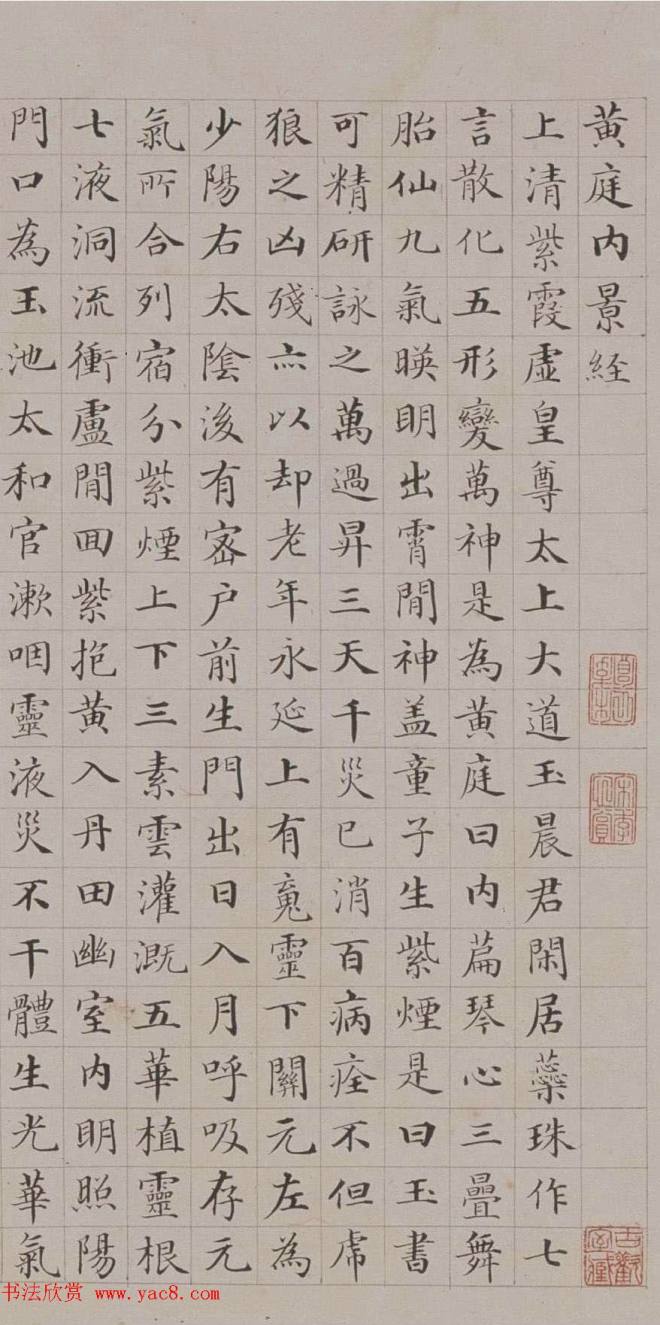 黃庭内景経
上清紫霞虛皇尊太上大道玉晨君閑居蘂珠作七
言散化五形變萬神是為黃庭曰内萹琴心三疊舞
胎仙九氣暎明出霄間神盖童子生紫煙是曰玉書
可精研詠之萬過昇三天千災已消百病痊不但虎
狼之凶殘亦以却老年永延上有䰟靈下關元左為
少陽右太陰後有密户前生門出日入月呼吸存元
氣所合列宿分紫煙上下三素雲灌溉五華植靈根
七液洞流衝盧間回紫抱黃入丹田幽室内明照陽
門口為玉池太和官漱咽靈液災不干體生光華氣
书法欣赏 www.yac8.com